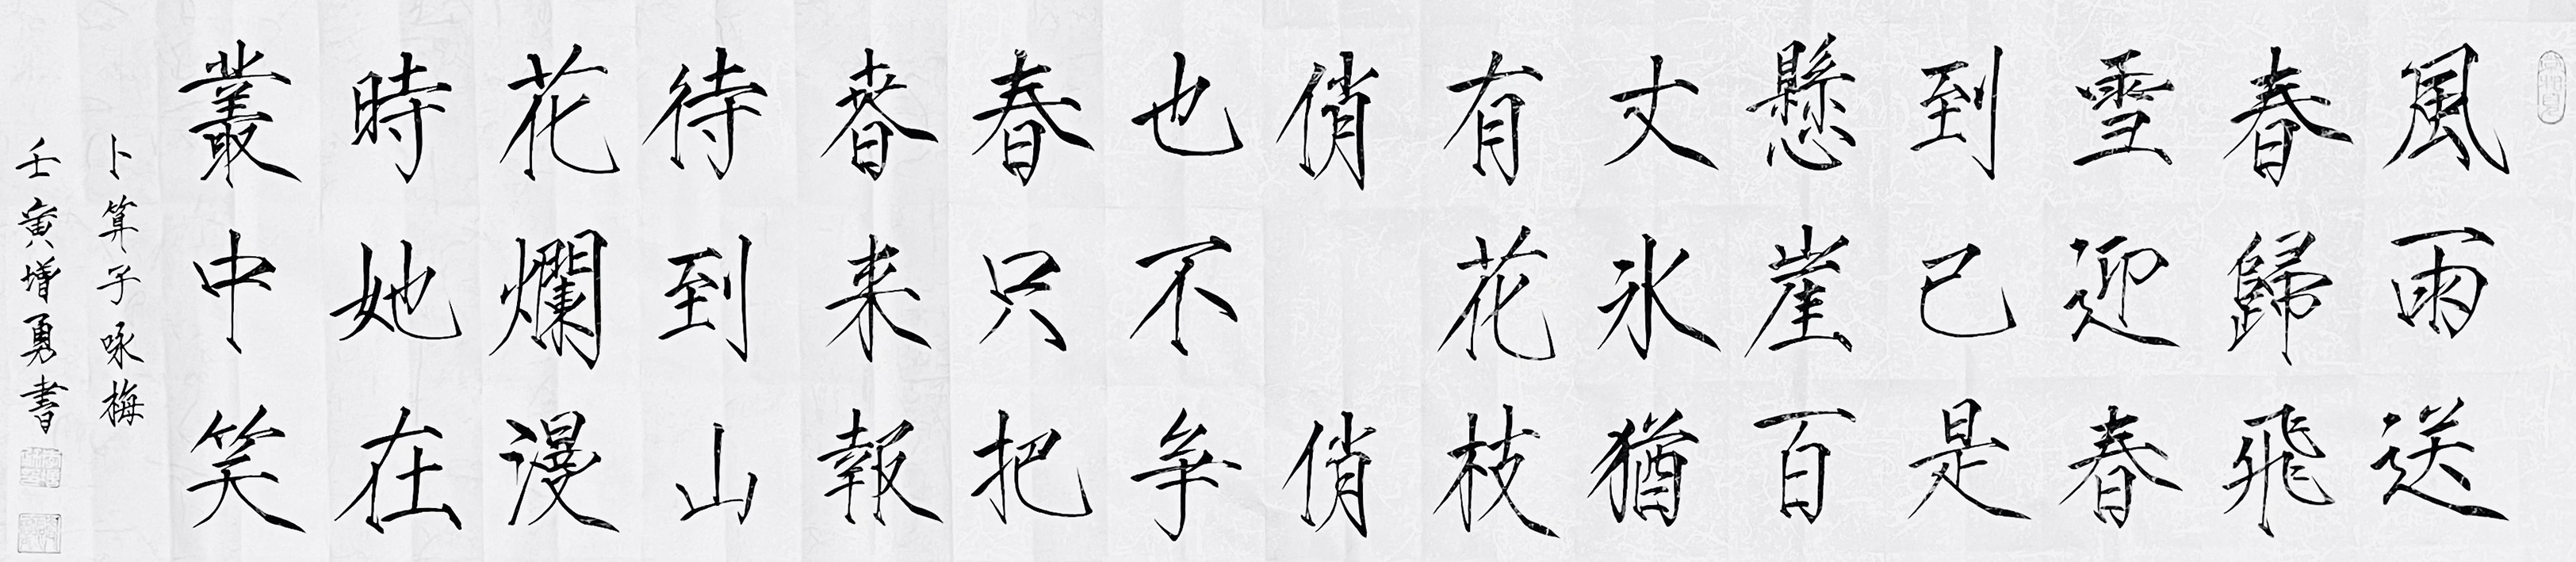 風雨送
春歸飛
雪迎春
到已是
懸崖百
丈氷猶
有花枝
俏 俏
也不争
春只把
春来報
待到山
花爛漫
時她在
叢中笑
卜算子咏梅
壬寅增勇書